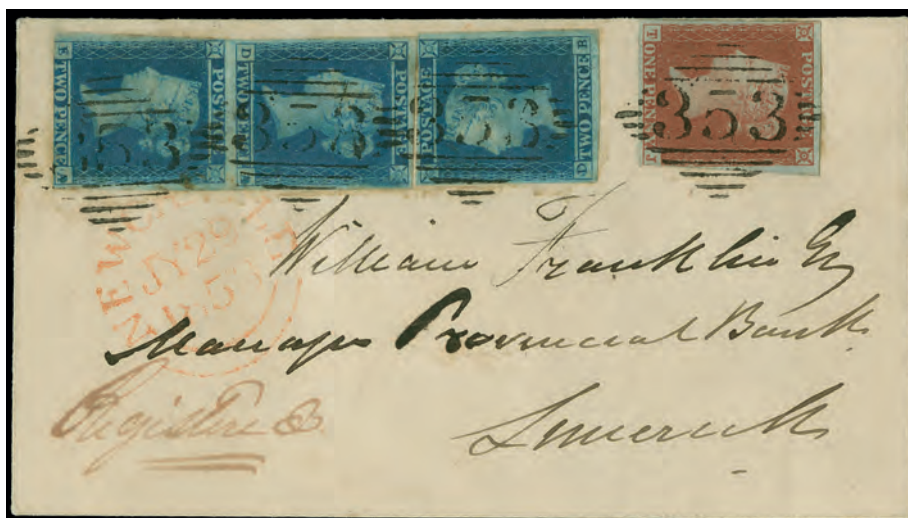 POSTAGE TWO PENCE
POSTAGE TWO PENCE
POSTAGE TWO PENCE
POSTAGE ONE PENNY
353 353 353 353
JY 29
1853
William Franklin Esq
Manager Provincial Bank
Limerick
Registered